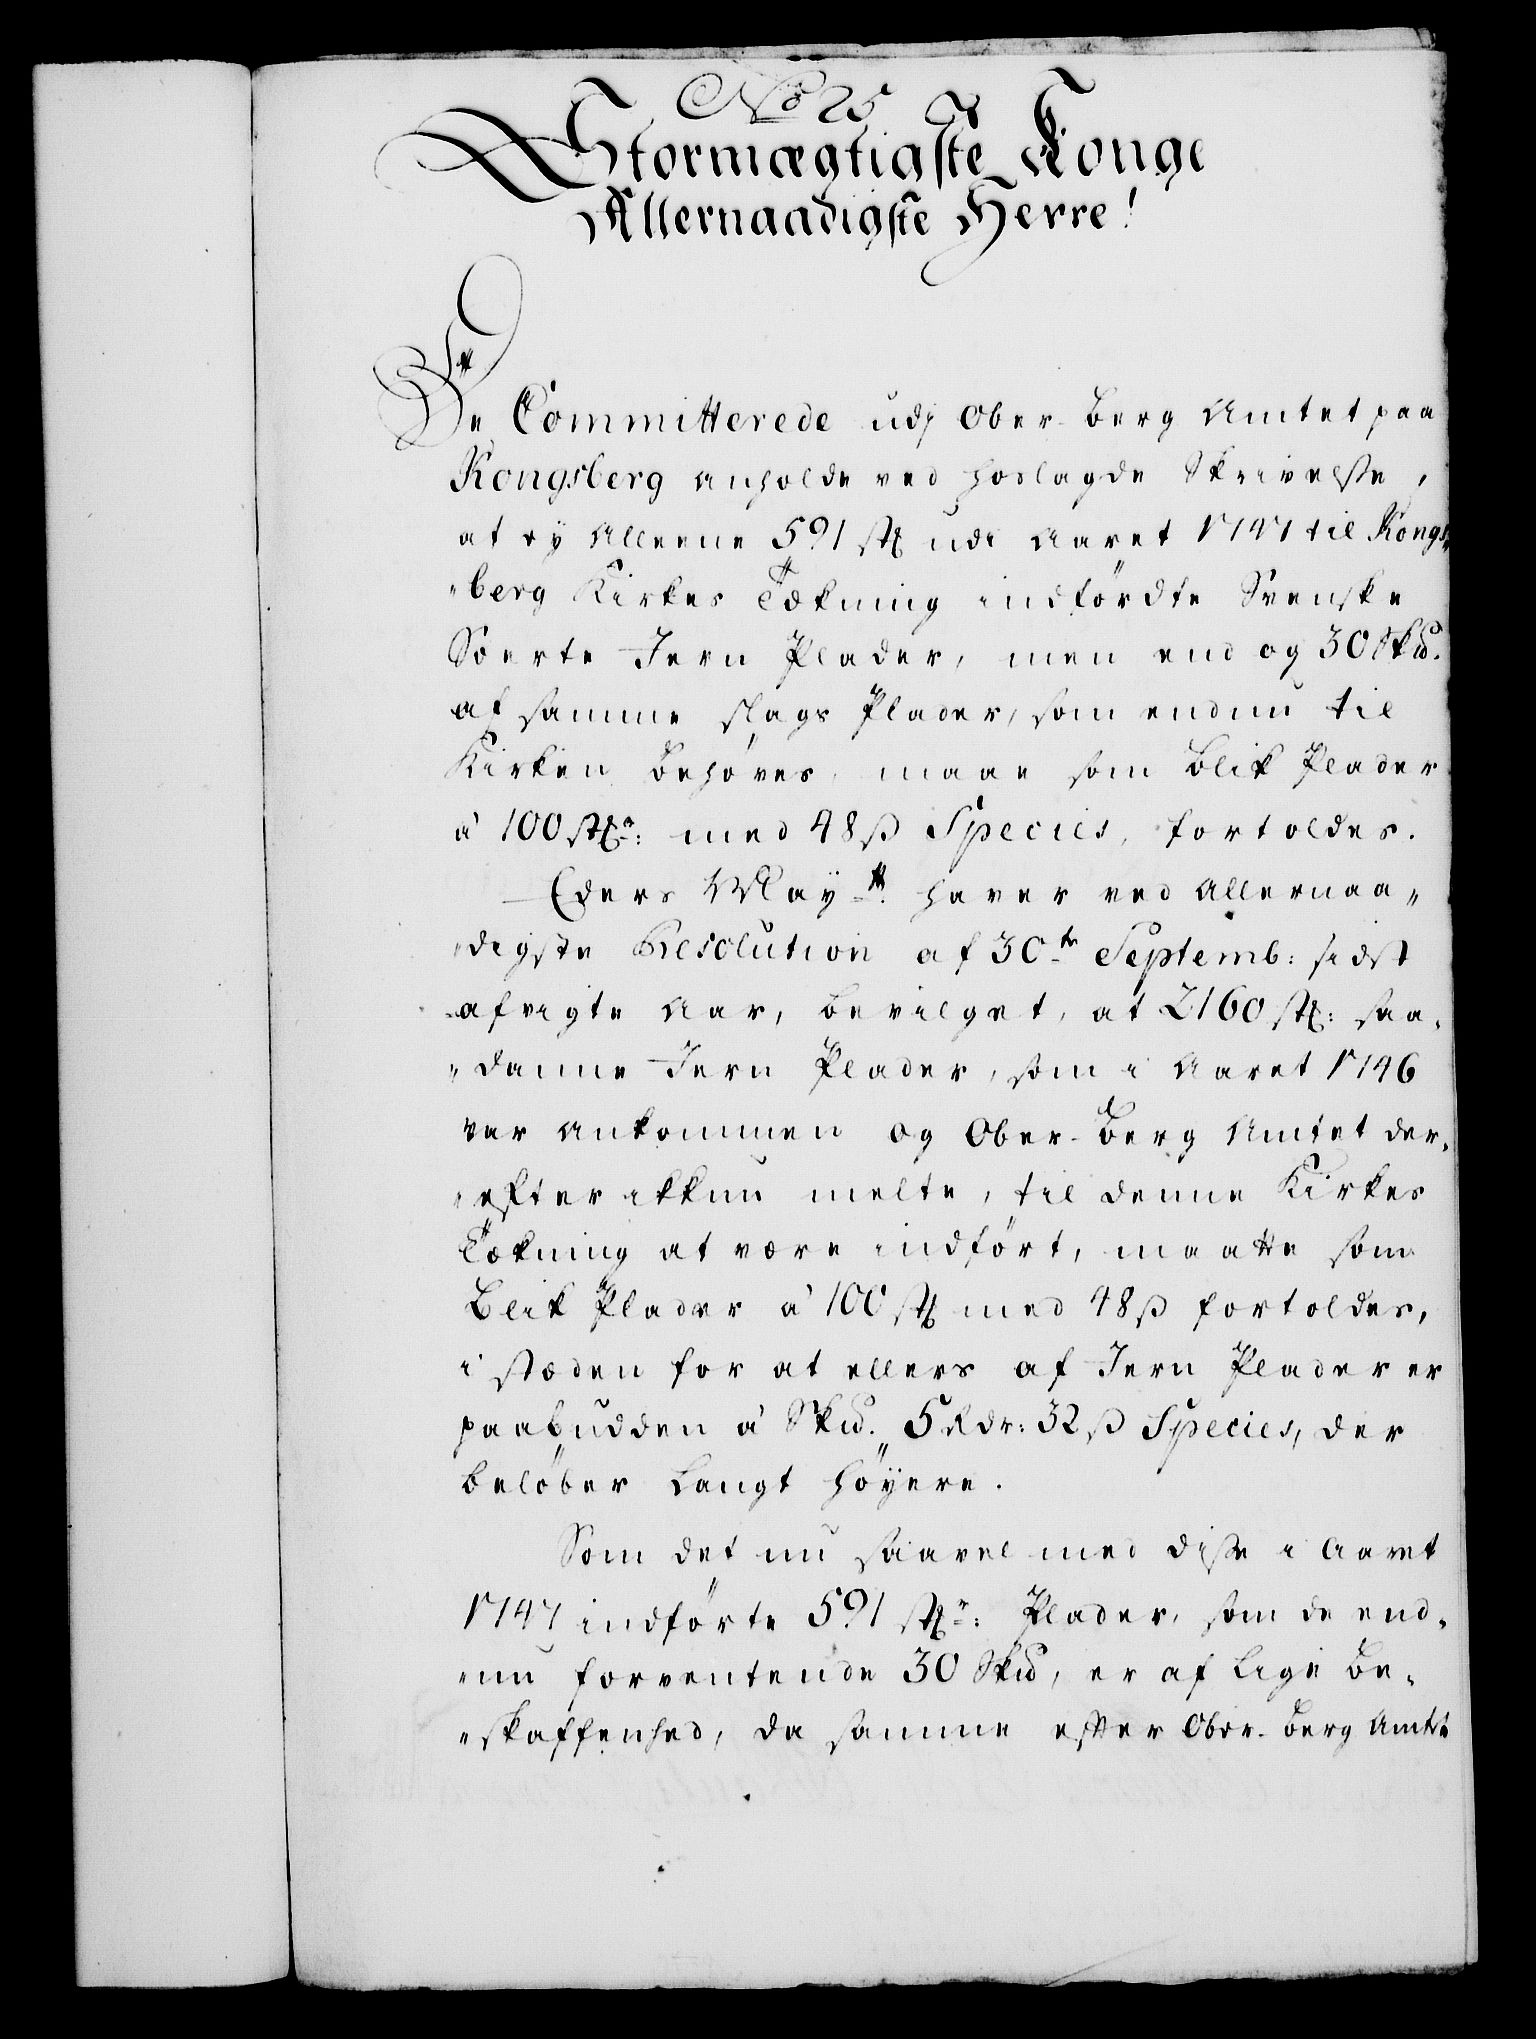 No 25
Stormægtigste Konge
Allernaadigste Herre!
De Committerede udj Ober-Berg Amtet paa
Kongsberg anholde ved hoslagde Skrivelse,
at ey Alleene 591 stk udi Aaret 1747 til Kongs„
„berg Kirkes Tækning indfördte Svenske
Sorte Jern Plader, men end og 30 Skd.
af samme slags Plader, som endnu til
Kirken behøves, maae som Blik Plader
á 100 stkr: med 48 ß Species, fortoldes.
Eders Maytt. haver ved Allernaa„
„digste Resolution af 30te Septemb: sidst
afvigte Aar, bevilget, at 2160 stk: saa„
„danne Jern Plader, som i Aaret 1746
var ankommen og Ober-Berg Amtet der„
„efter ikkun melte, til denne Kirkes
Tækning at være indført, maatte som
Blik Plader á 100 stk med 48 ß fortoldes,
i stæden for at ellers af Jern Plader er
paabudden á Skd. 5 Rdr: 32 ß Species, der
beløber langt høyere.
Som det nu saavel med disse i Aaret
1747 indførte 591 stkr: Plader, som de end„
„nu forventende 30 Skd, er af lige be„
„skaffenhed, da samme efter Ober-Berg Amtets